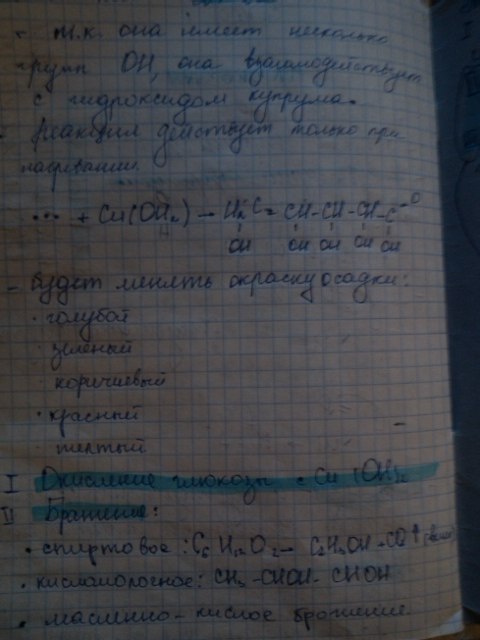 - т.к. она имеет несколько
групп OH, она взаимодействует
с гидроксидом купрума.
Реакция действует только при
нагревании.
... + Cu(OH₂) → H₂C - CH-CH-CH-C-O
OH OH OH OH OH
- будет менять окраску осадки:
· голубой
· зеленый
· коричневый
· красный
· желтый
I Окисление глюкозы с Cu(OH)₂
II Брожение:
· спиртовое: C₆H₁₂O₂ → C₂H₅OH + CO₂↑
· кисломолочное: CH₃-CHOH-CHOH
· масленно-кислое брожение